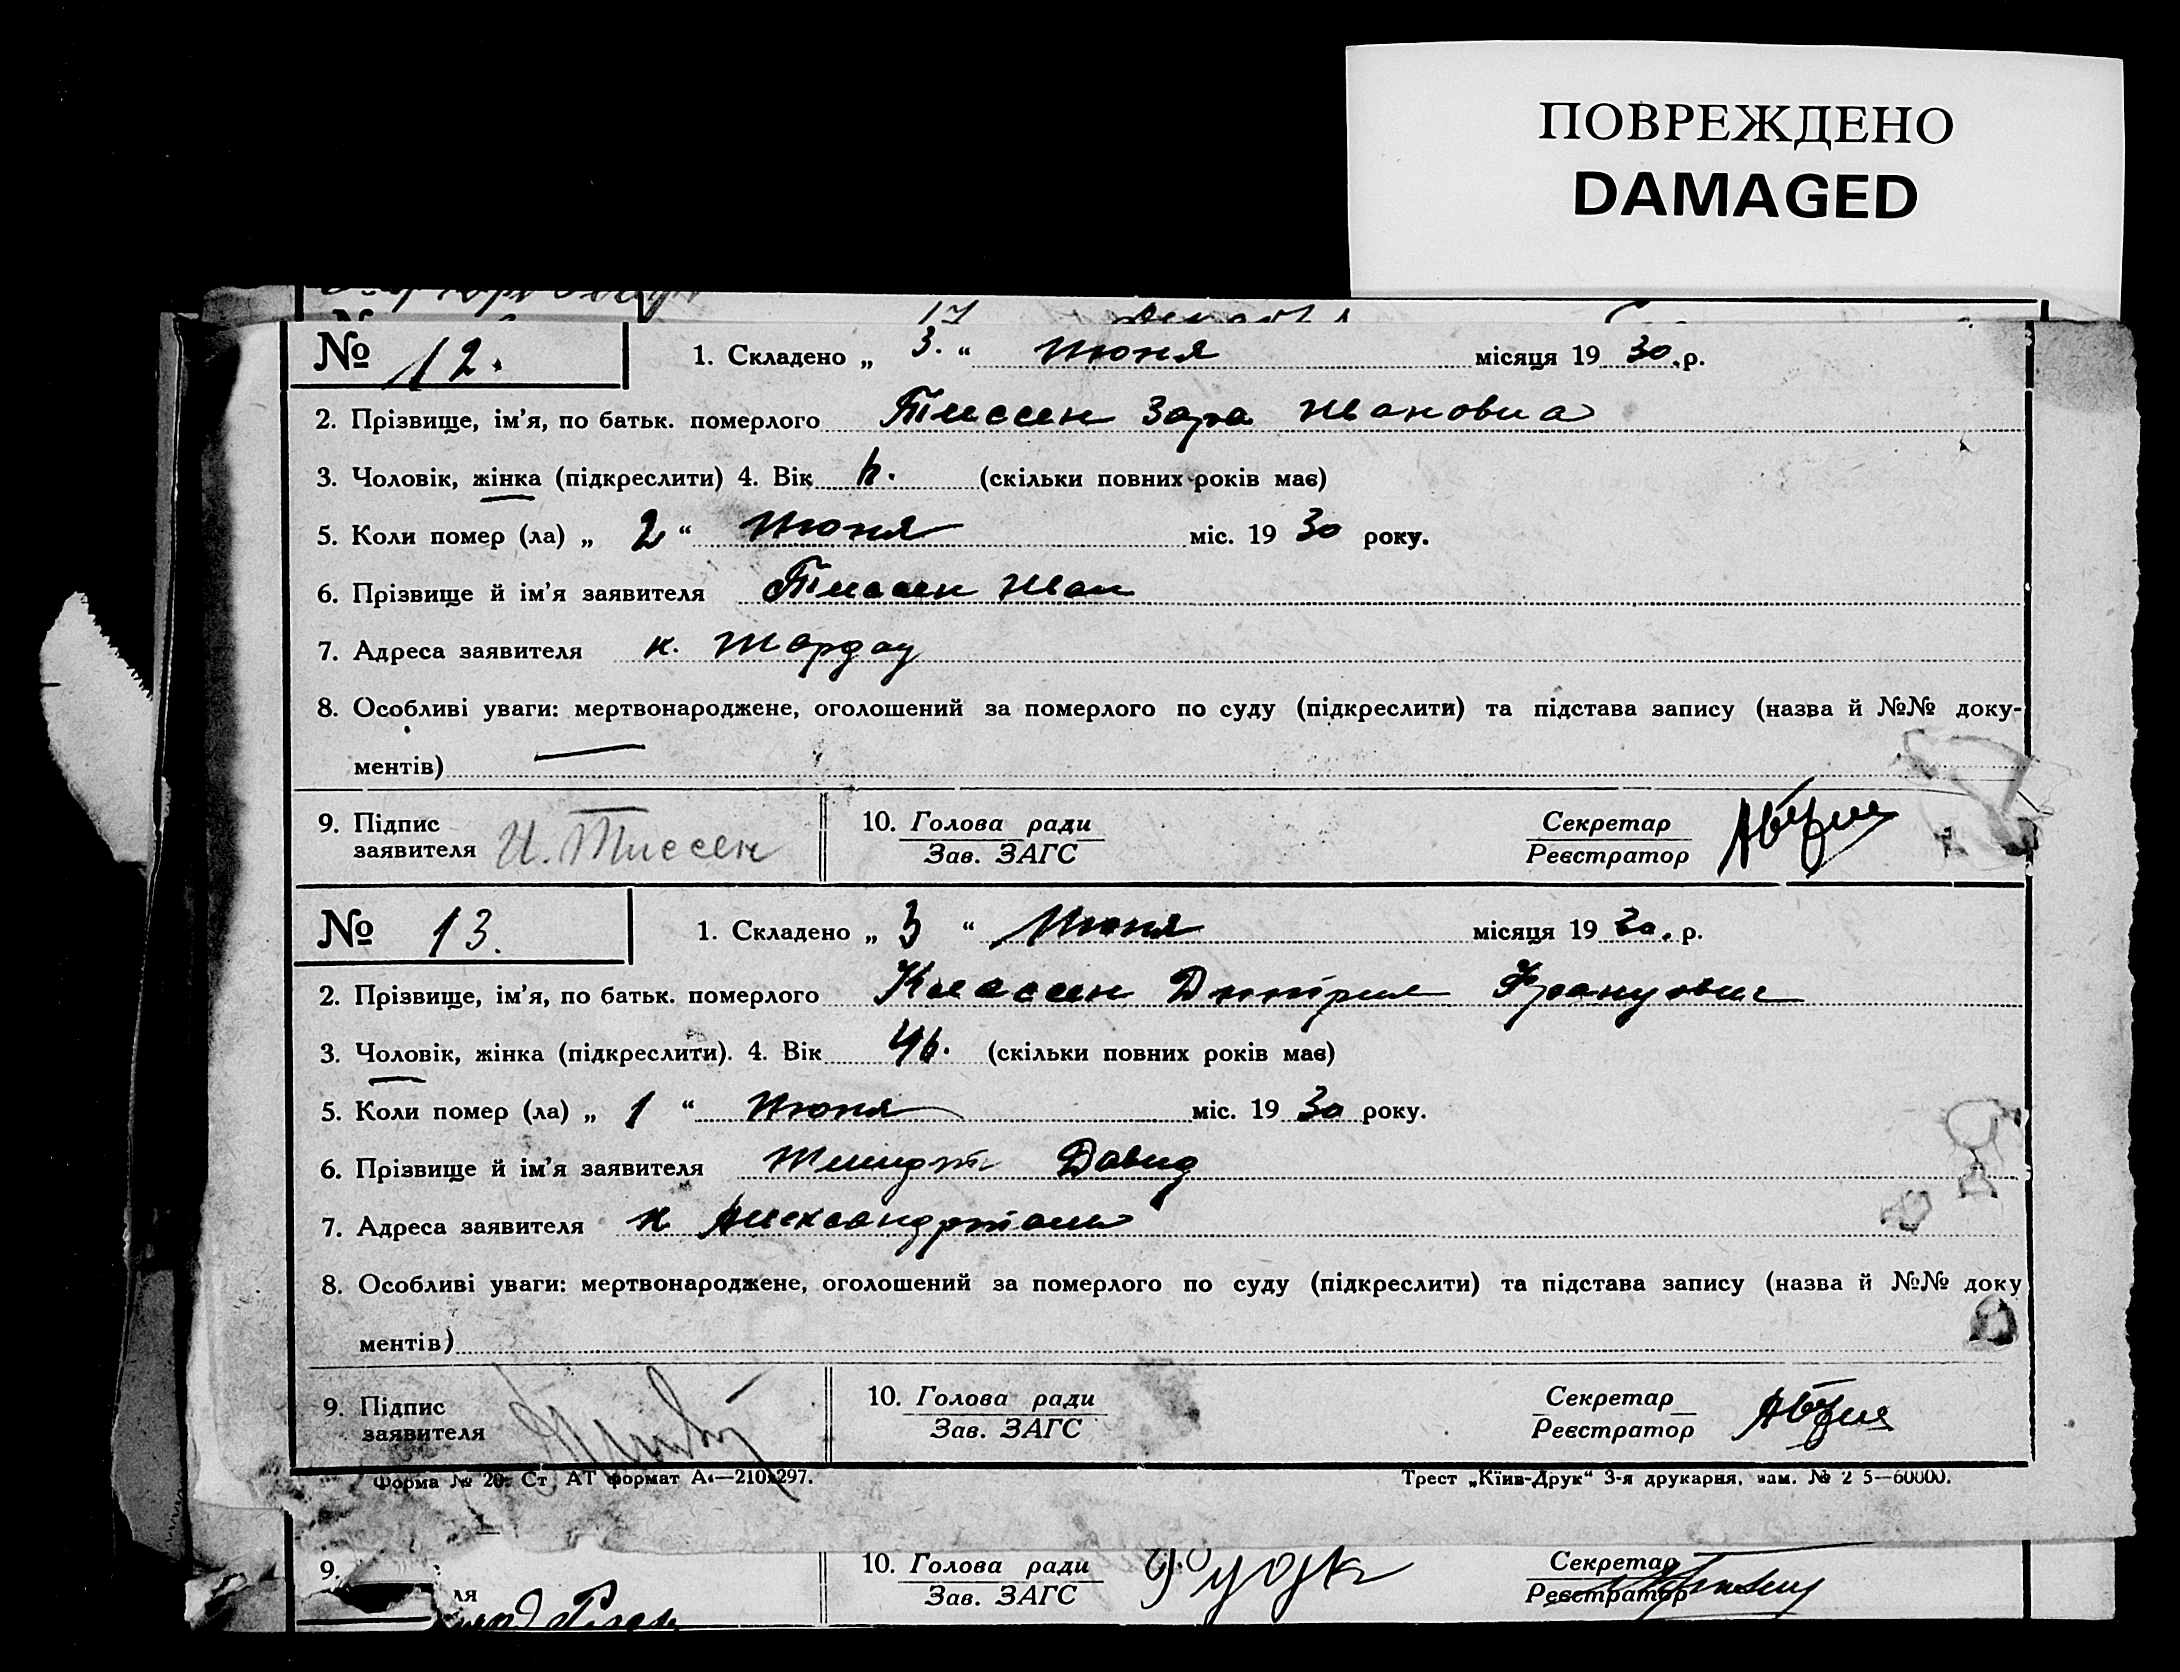 ПОВРЕЖДЕНО
DAMAGED
№ 12. 1. Складено „ 3. “ Июня місяця 19 30. р.
2. Прізвище, ім'я, по батьк. померлого Тиссен Зара Ивановна
3. Чоловік, жінка (підкреслити) 4. Вік (скільки повних років має)
5. Коли помер (ла) „ 2 “ Июня міс. 19 30 року.
6. Прізвище й ім'я заявителя Тиссен Иван
7. Адреса заявителя к. Шардау
8. Особливі уваги: мертвонароджене, оголошений за померлого по суду (підкреслити) та підстава запису (назва й №№ доку-
ментів) —
9. Підпис заявителя И. Тиссен 10. Голова ради Зав. ЗАГС Секретар Реєстратор
№ 13. 1. Складено „ 3 “ Июня місяця 19 30. р.
2. Прізвище, ім'я, по батьк. померлого Классен Дмитрий Францович
3. Чоловік, жінка (підкреслити). 4. Вік (скільки повних років має)
5. Коли помер (ла) „ 1 “ Июня міс. 19 30 року.
6. Прізвище й ім'я заявителя Шмидт Давид
7. Адреса заявителя к
8. Особливі уваги: мертвонароджене, оголошений за померлого по суду (підкреслити) та підстава запису (назва й №№ доку
ментів)
9. Підпис заявителя 10. Голова ради Зав. ЗАГС Секретар Реєстратор
Форма № 20. Ст АТ формат А4—210х297. Трест „Київ-Друк“ 3-я друкарня, зам. № 2 5—60000.
9. ля 10. Голова ради Зав. ЗАГС Секретар Реєстратор